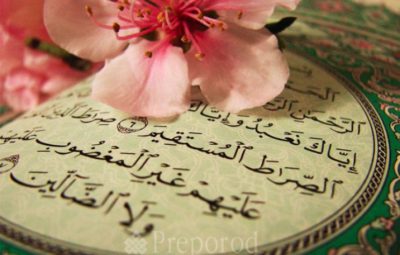 الرَّحْمَٰنِ
إِيَّاكَ نَعْبُدُ وَإِيَّاكَ
الصِّرَاطَ الْمُسْتَقِيمَ ۝ صِرَاطَ الَّذِينَ
عَلَيْهِمْ غَيْرِ الْمَغْضُوبِ عَلَيْهِمْ
وَلَا الضَّالِّينَ ۝
Preporod